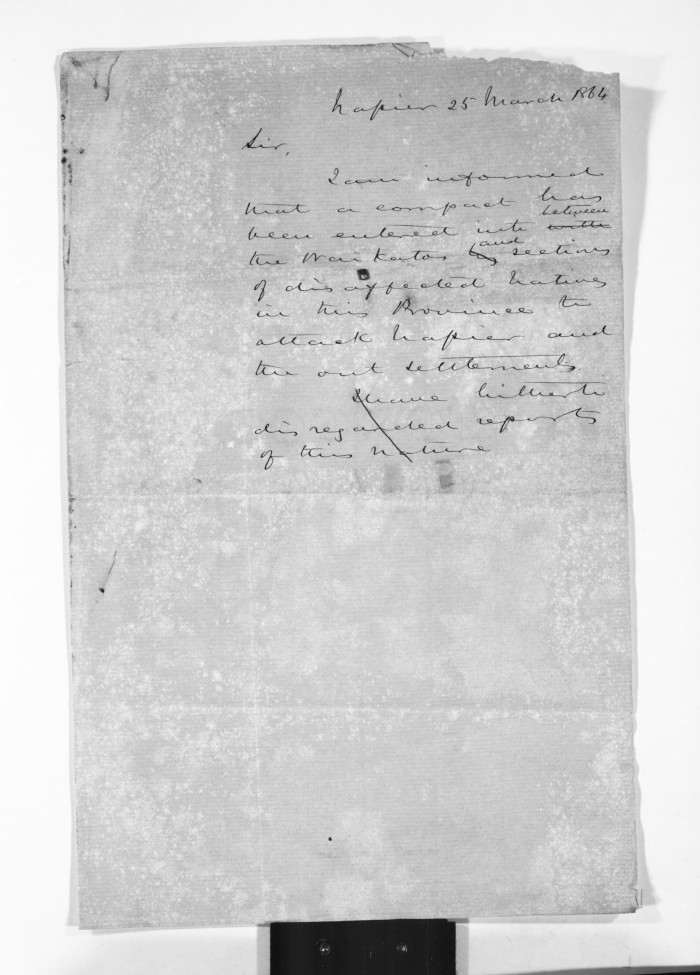 Napier 25 March 1864
Sir,
I am informed
that a compact has
been entered into with between
the Waikatos and sections
of disaffected Natives
in this Province to
attack Napier and
the out settlements.
I have hitherto
disregarded reports
of this nature